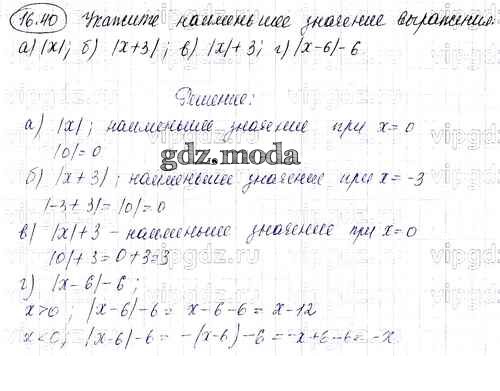 16.40 Укажите наименьшее значение выражения:
а) |x|; б) |x+3|; в) |x|+3; г) |x-6|-6
Решение:
а) |x|; наименьшее значение при x=0
|0|=0
gdz.moda
б) |x+3|; наименьшее значение при x=-3
|-3+3|=|0|=0
в) |x|+3 - наименьшее значение при x=0
|0|+3=0+3=3
г) |x-6|-6;
x>0; |x-6|-6=x-6-6=x-12
x<0; |x-6|-6=-(x-6)-6=-x+6-6=-x
vipgdz.ru